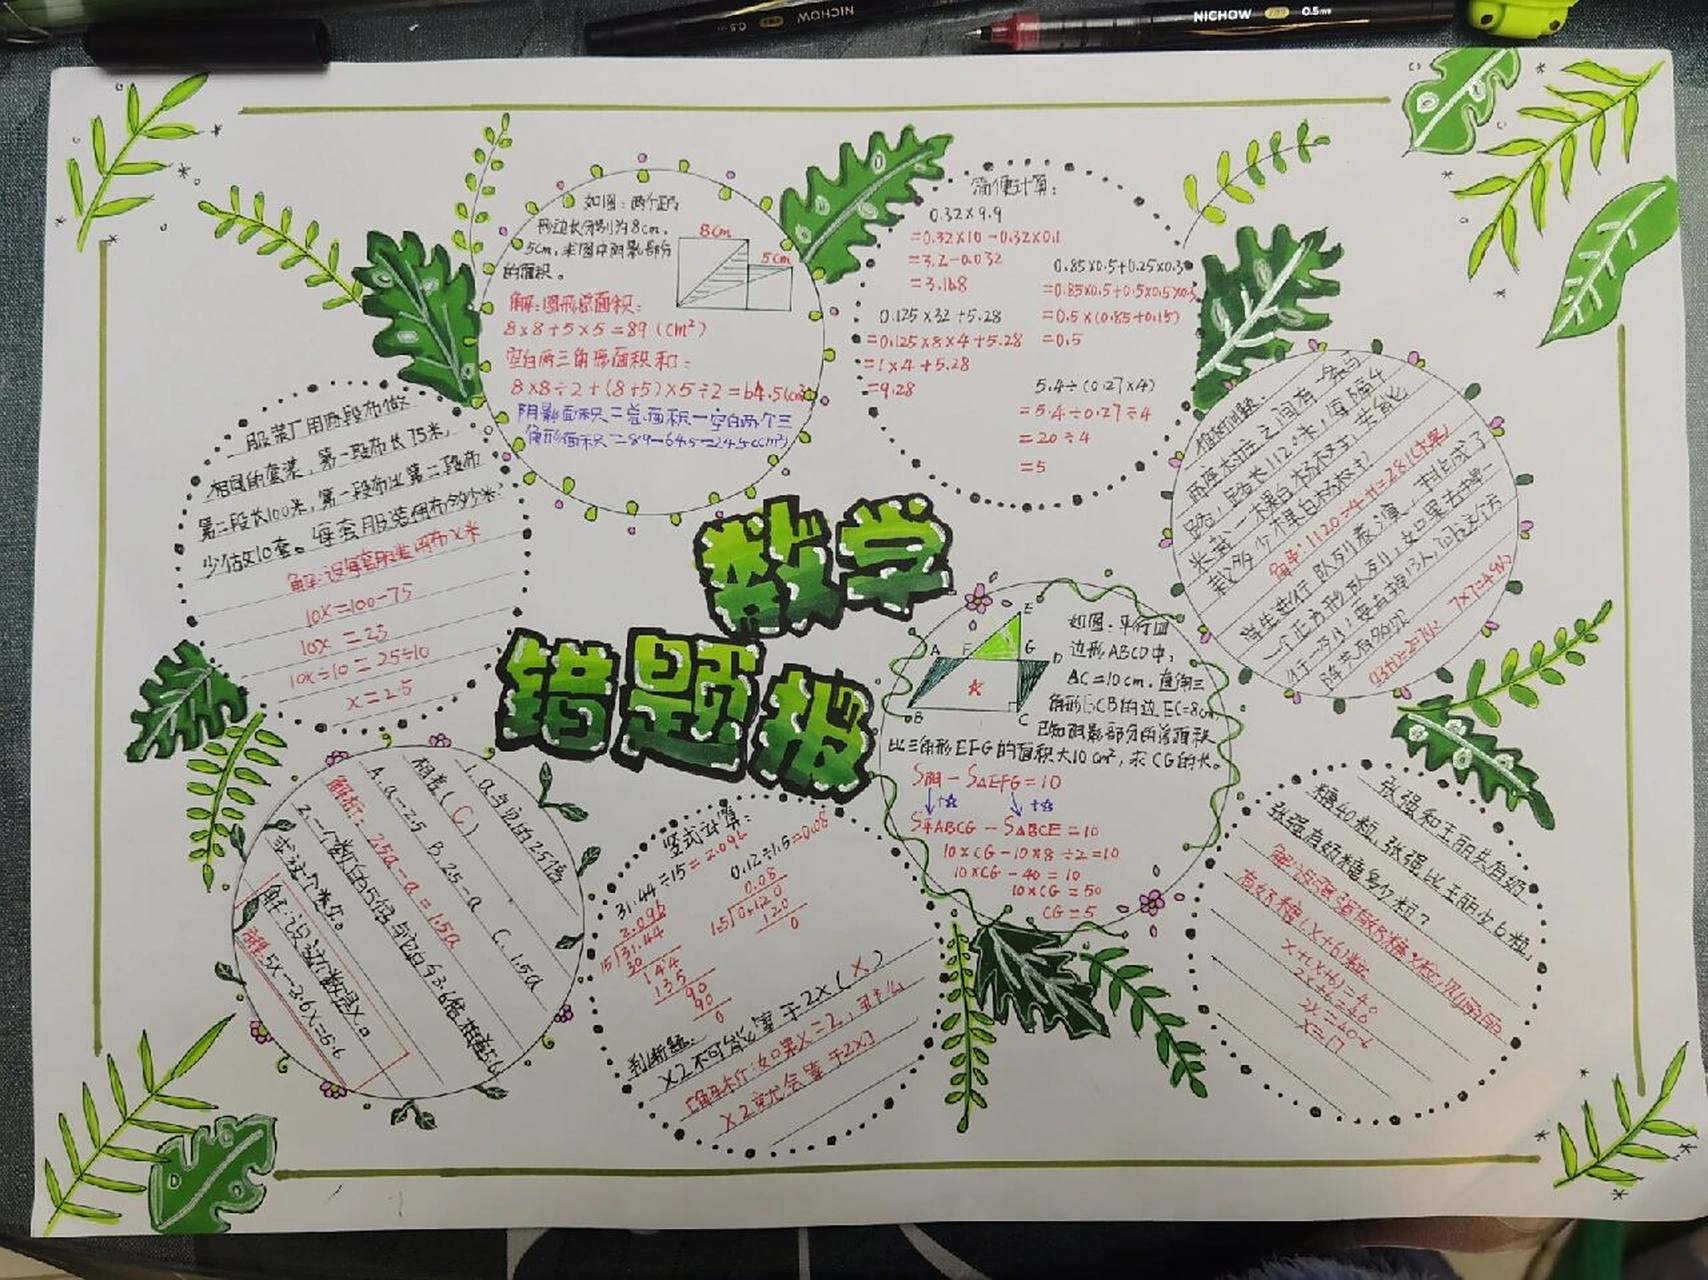 NICHOW
0.5
NICHOW
0.5mm
数学
错题报
如图：两个正方
形边长分别为8cm，
5cm，求图中阴影部分
的面积。
8cm
5cm
解：图形总面积：
8×8+5×5=89(cm²)
空白两三角形面积和：
8×8÷2+(8+5)×5÷2=64.5(cm²)
阴影面积=总面积-空白两个三
角形面积=89-64.5=24.5(cm²)
简便计算：
0.32×9.9
=0.32×10-0.32×0.1
=3.2-0.032
=3.168
0.125×32+5.28
=0.125×8×4+5.28
=1×4+5.28
=9.28
0.85×0.5+0.25×0.3
=0.85×0.5+0.5×0.5×0.3
=0.5×(0.85+0.15)
=0.5
5.4÷(0.27×4)
=5.4÷0.27÷4
=20÷4
=5
服装厂用两段布做
相同的套装，第一段布长75米，
第二段长100米，第一段布比第二段布
少做10套。每套服装用布多少米？
解：设每套服装用布x米
10x=100-75
10x=25
10x÷10=25÷10
x=2.5
植树问题：
两座村庄之间有一条马
路，路长1120米，每隔4
米栽一棵白杨树，共能
栽多少棵白杨树？
解：1120÷4+1=281(棵)
学生进行队列表演，排成了
一个正方形队列，如果去掉一
行一列，要去掉13人，问这个方
阵共有多少人
(13+1)÷2=7(人)
7×7=49(人)
如图：平行四
边形ABCD中，
AC=10cm，直角三
角形ECB的边EC=8cm
已知阴影部分的总面积
比三角形EFG的面积大10cm²，求CG的长。
A
F
E
G
D
B
C
S阴-S△EFG=10
+☆
+☆
S平ABCG-S△BCE=10
10×CG-10×8÷2=10
10×CG-40=10
10×CG=50
CG=5
1.a与它的2.5倍
相差(C)
A.a-2.5 B.2.5-a C.1.5a
解析：2.5a-a=1.5a
2.一个数的5倍与它的3.6倍相差5.6
求这个数。
解：设这个数是x。
解5x-3.6x=5.6
竖式计算：
31.44÷15=2.096
2.096
15 31.44
30
144
135
90
90
0
0.12÷1.5=0.08
0.08
1.5 0.120
120
0
判断题：
x2不可能等于2x(×)
解析：如果x=2，那么
x2就会等于2x了
张强和王丽共有奶
糖40粒，张强比王丽少6粒，
张强有奶糖多少粒？
解：设张强有奶糖x粒，则王丽
有奶糖(x+6)粒
x+(x+6)=40
2x+6=40
2x=40-6
x=17